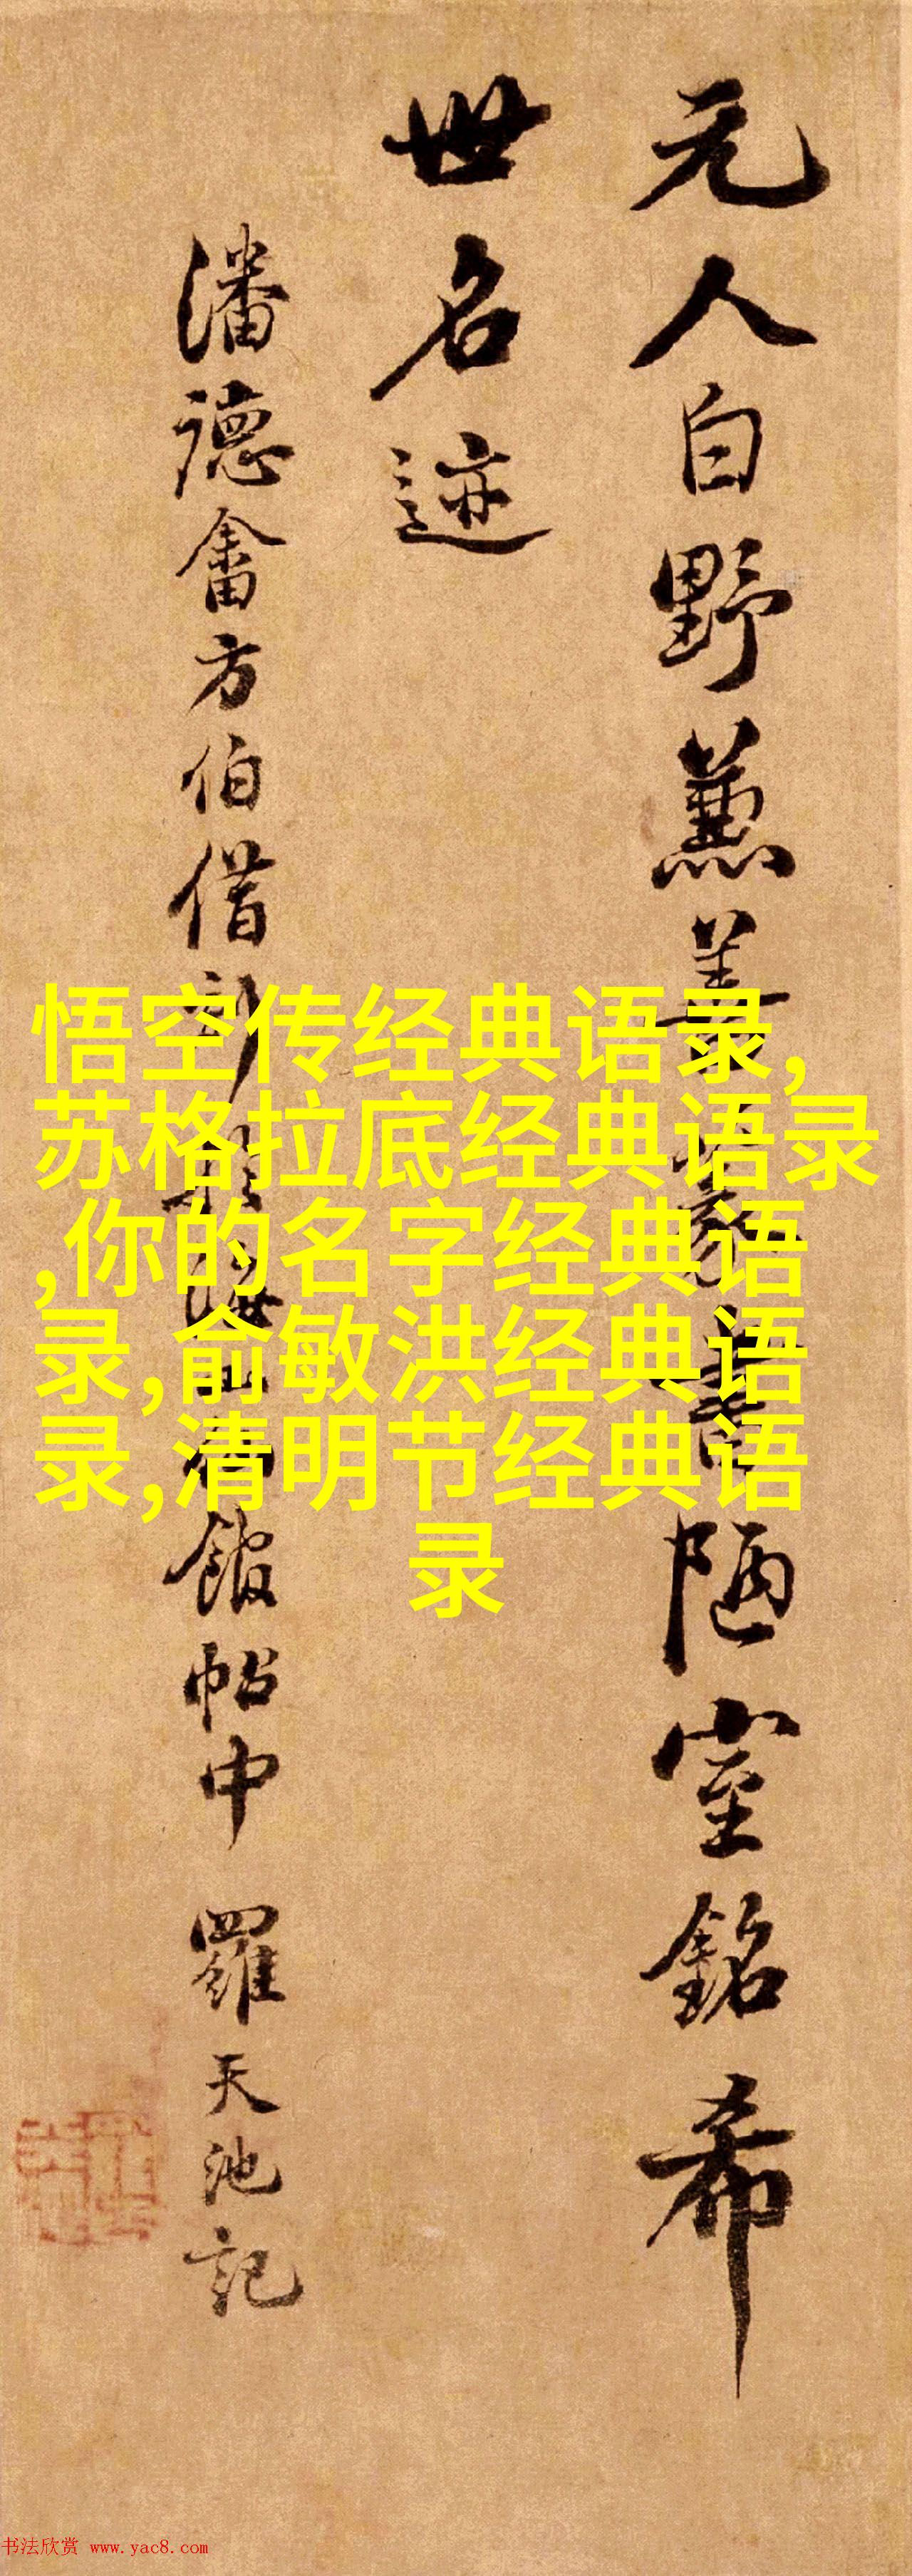 元人白野兼善篆書陋室銘希
世名迹
潘德畬方伯借刻於海山仙館帖中 羅天池記
悟空传经典语录,
苏格拉底经典语录
,你的名字经典语
录,俞敏洪经典语
录,清明节经典语
录
书法欣赏 www.yac8.com